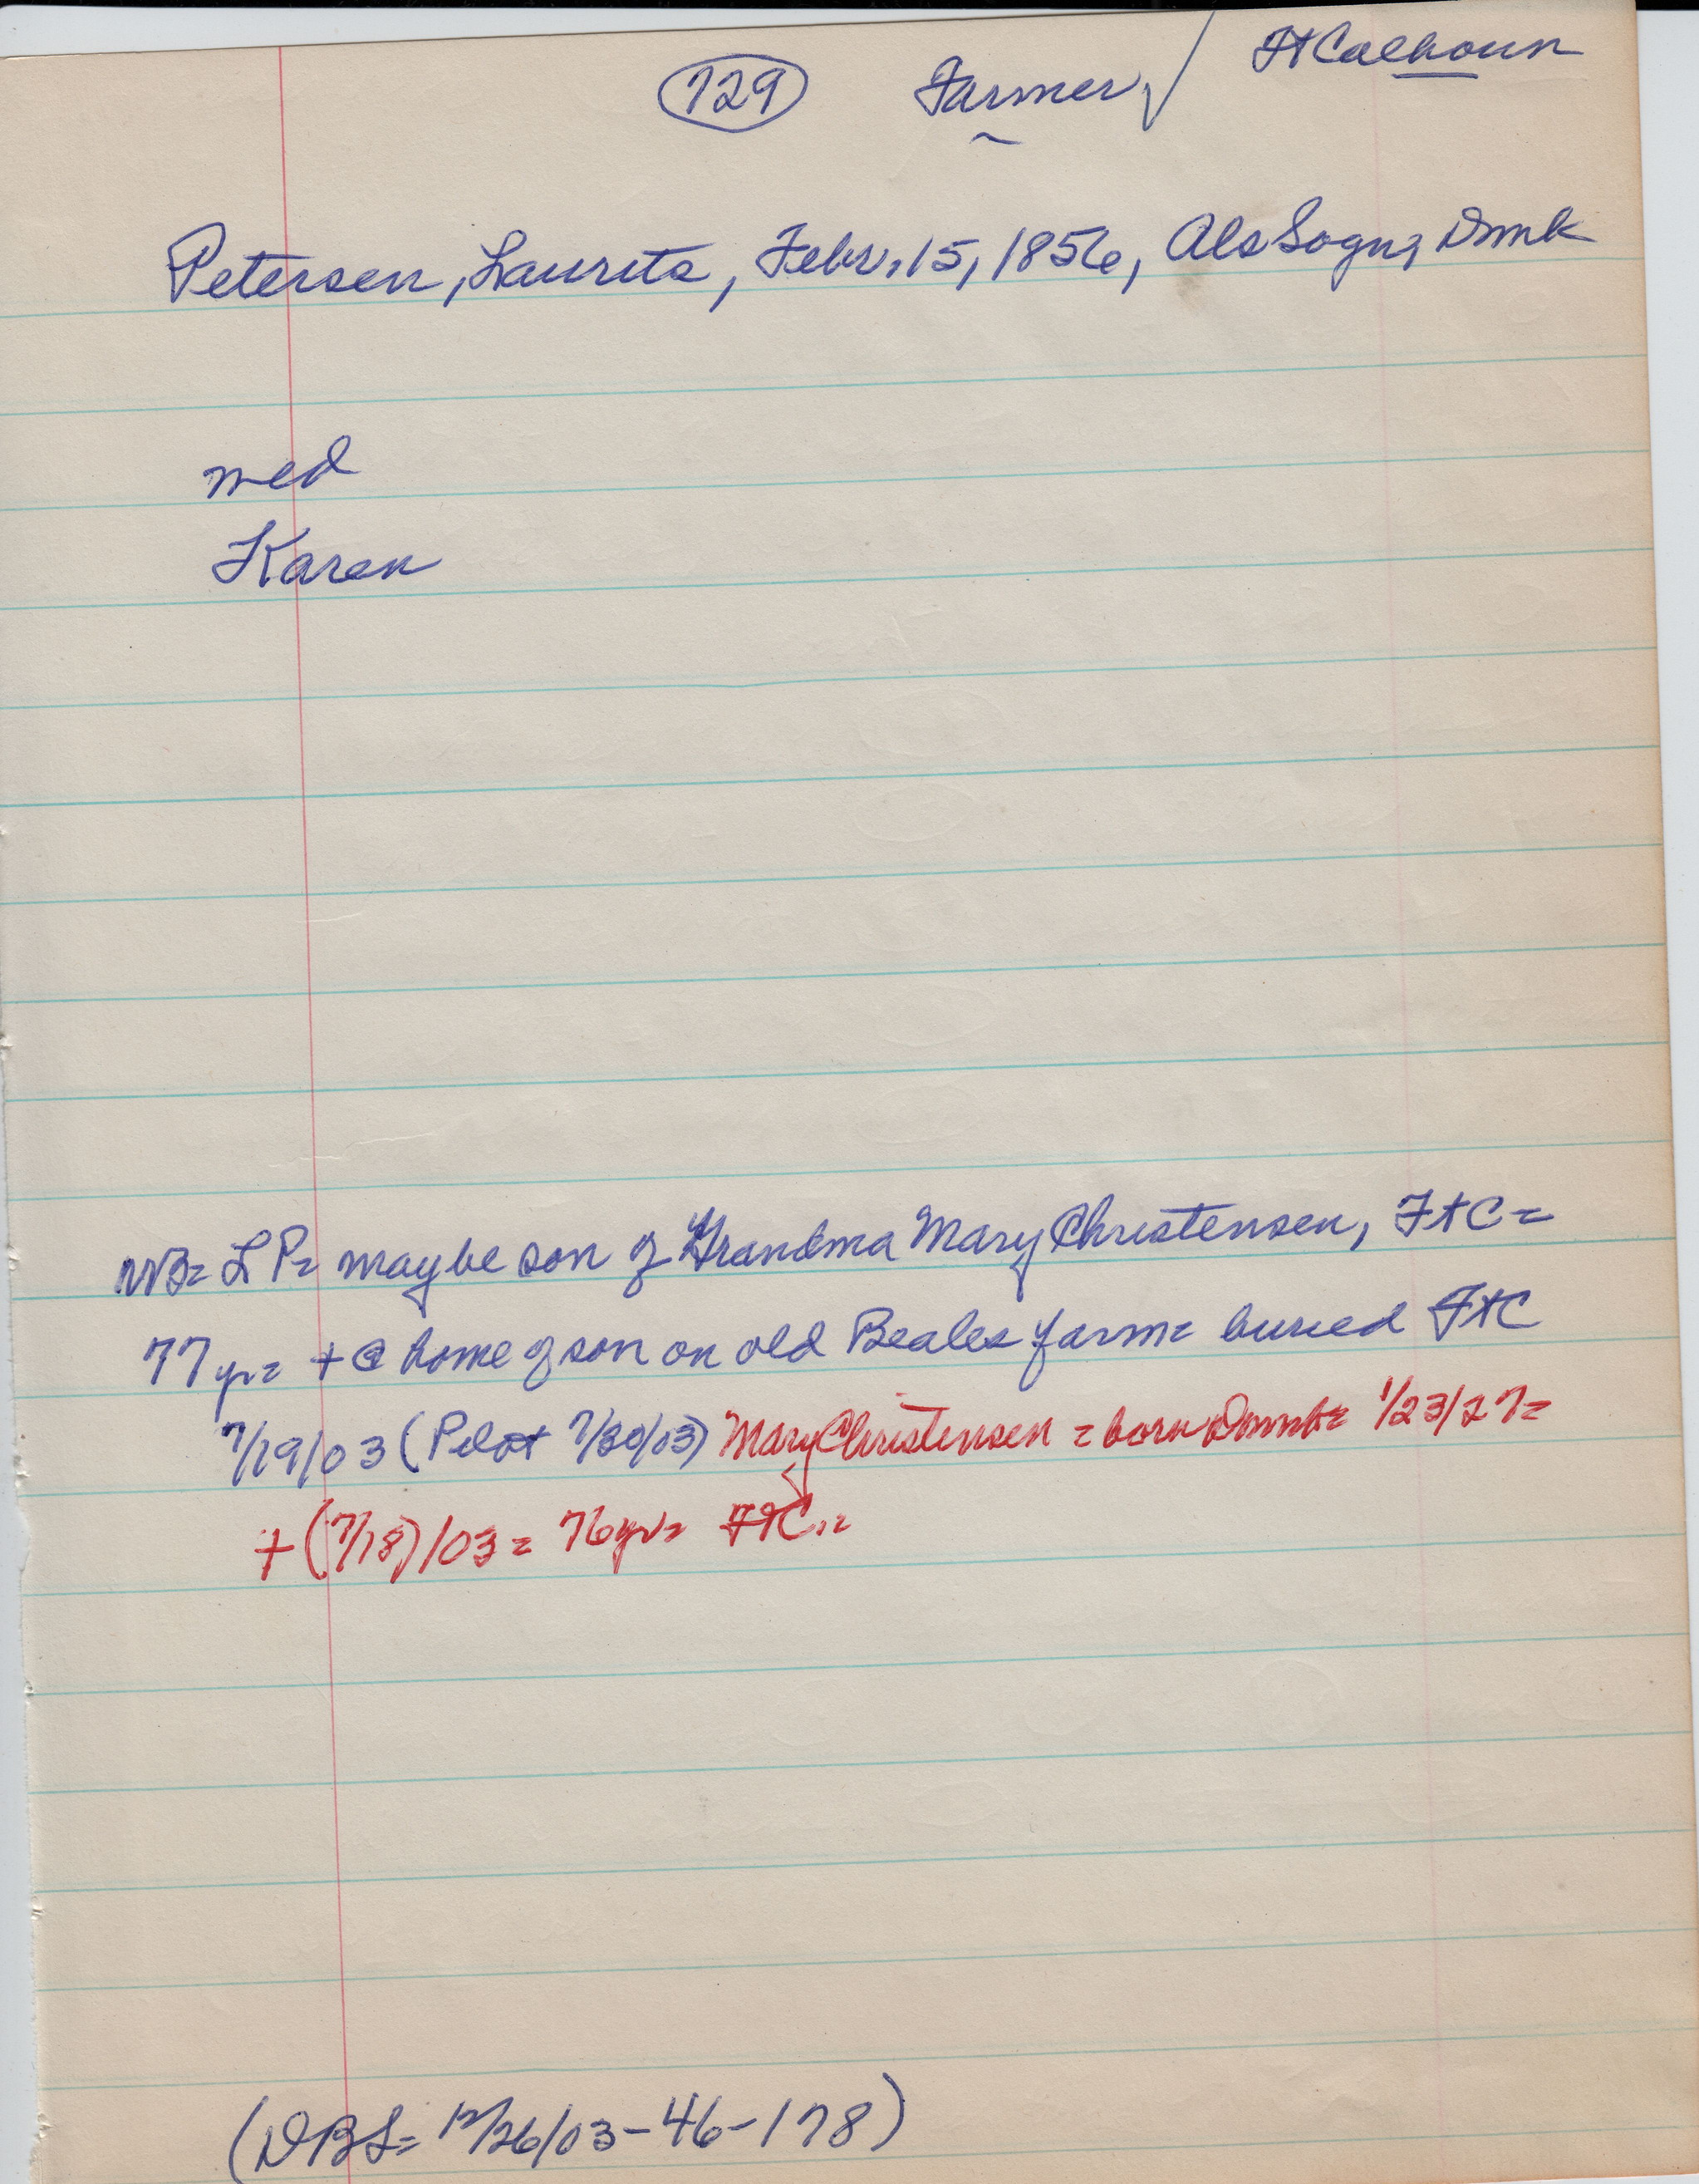 729 Farmer, / Ft Calhoun
Petersen, Laurits, Febr. 15, 1856, Als Sogn, Dmk
med
Karen
NB= LP= maybe son of Grandma Mary Christensen, FtC=
77 yr= + @ home of son on old Beales farm= buried FtC
7/19/03 (Pilot 7/30/03) Mary Christensen = born Dmk= 1/23/27=
+ (7/18)/03 = 76 yr= FtC.=
(DBS= 12/26/03-46-178)